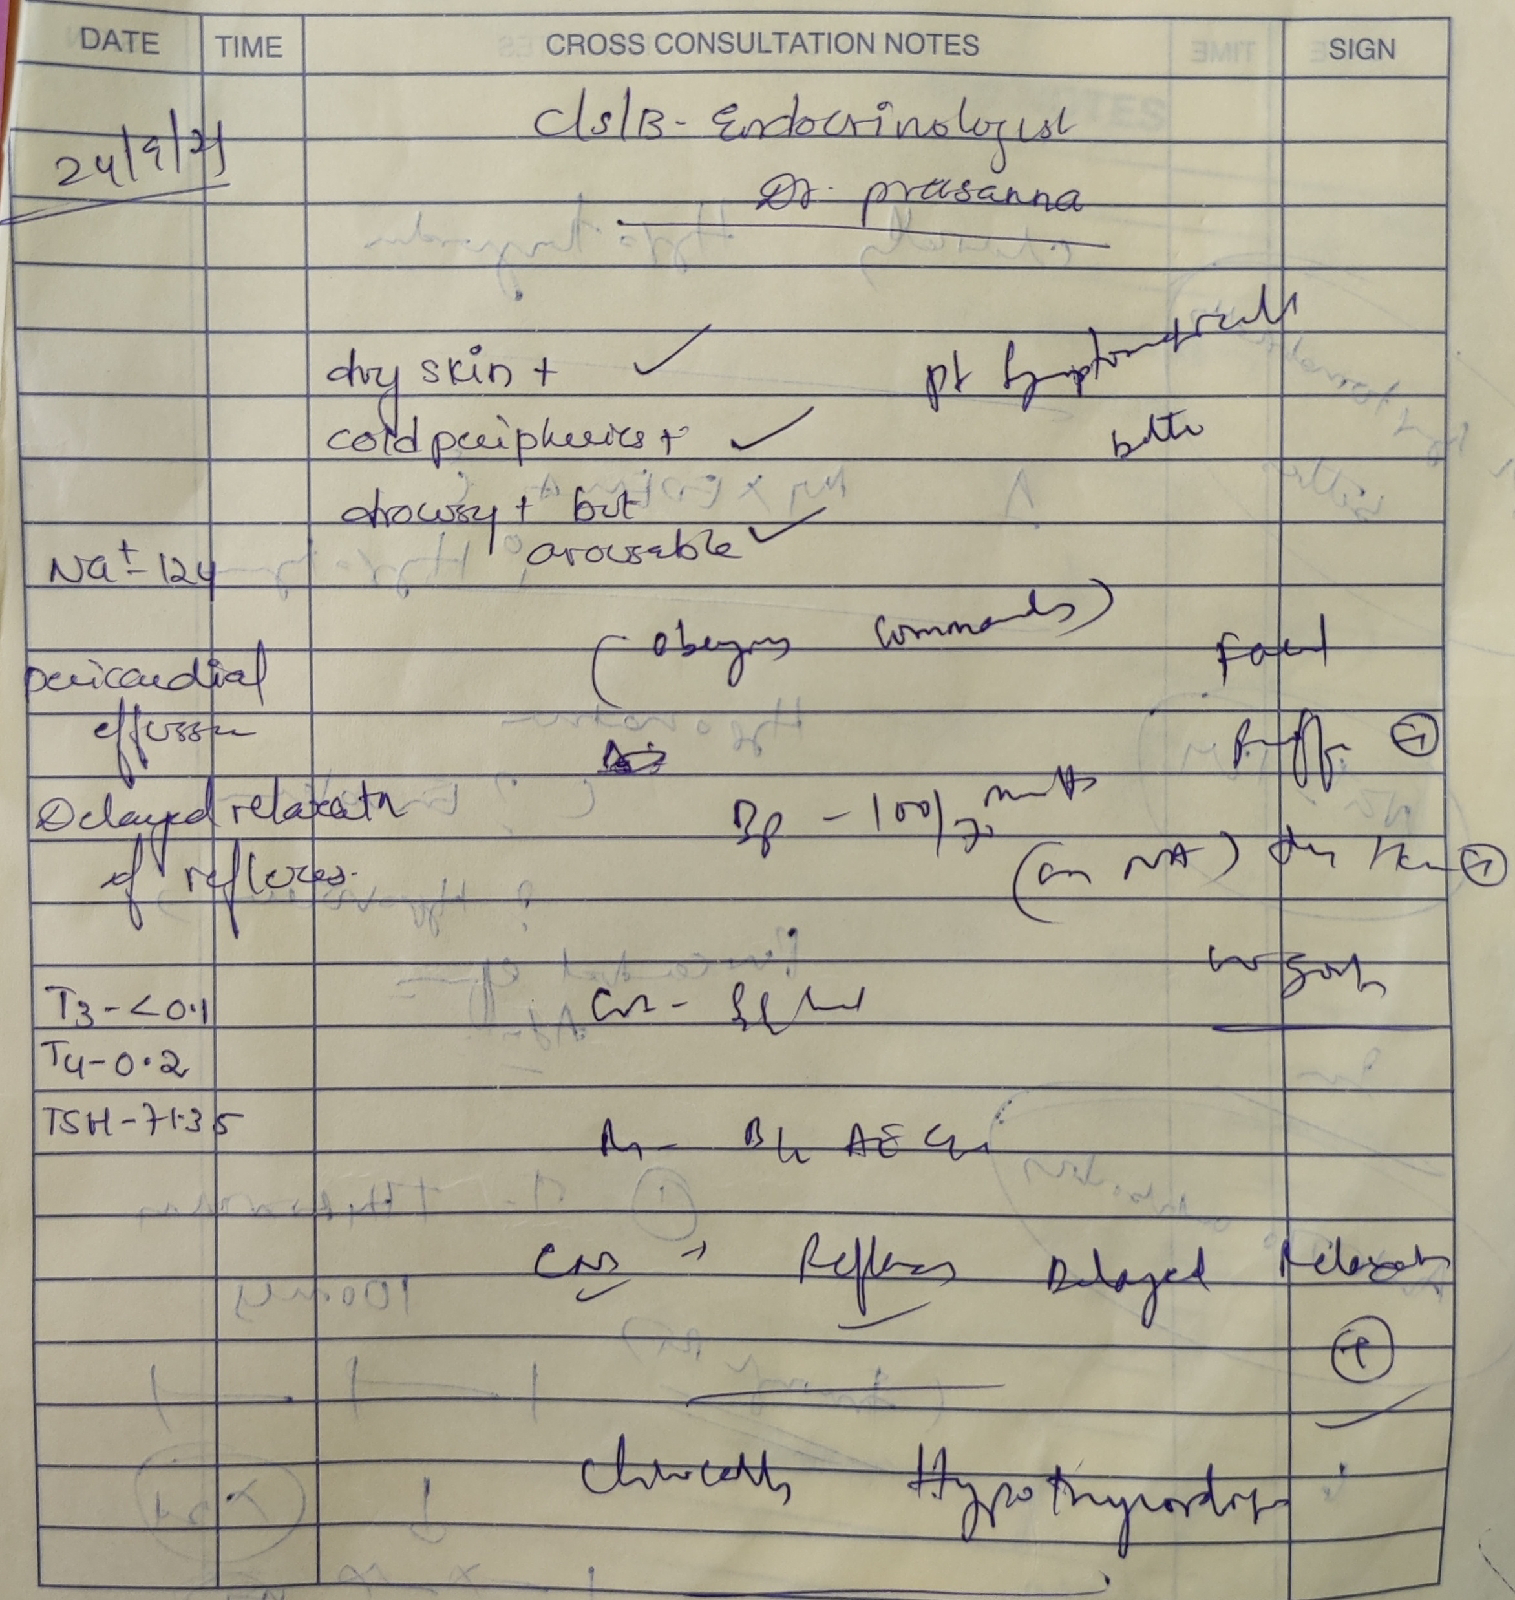 DATE TIME CROSS CONSULTATION NOTES SIGN
24/9/21
C/S/B - Endocrinologist
Dr. prasanna
dry skin +
pt symptomatically
better
cold peripheries +
drowsy + but
arousable
Na+ - 124
(obeying commands)
pericardial
effusion
Facial
Puffi. +
Delayed relaxatn
of reflexes.
BP - 100/70 mmHg
(on NA)
dry skin +
no goitre
T3 - <0.1
CVS - S1S2 heard
T4 - 0.2
TSH - 71.35
RS - B/L AE
CNS → Reflexes Delayed Relaxation
+
Clinically Hypothyroidism